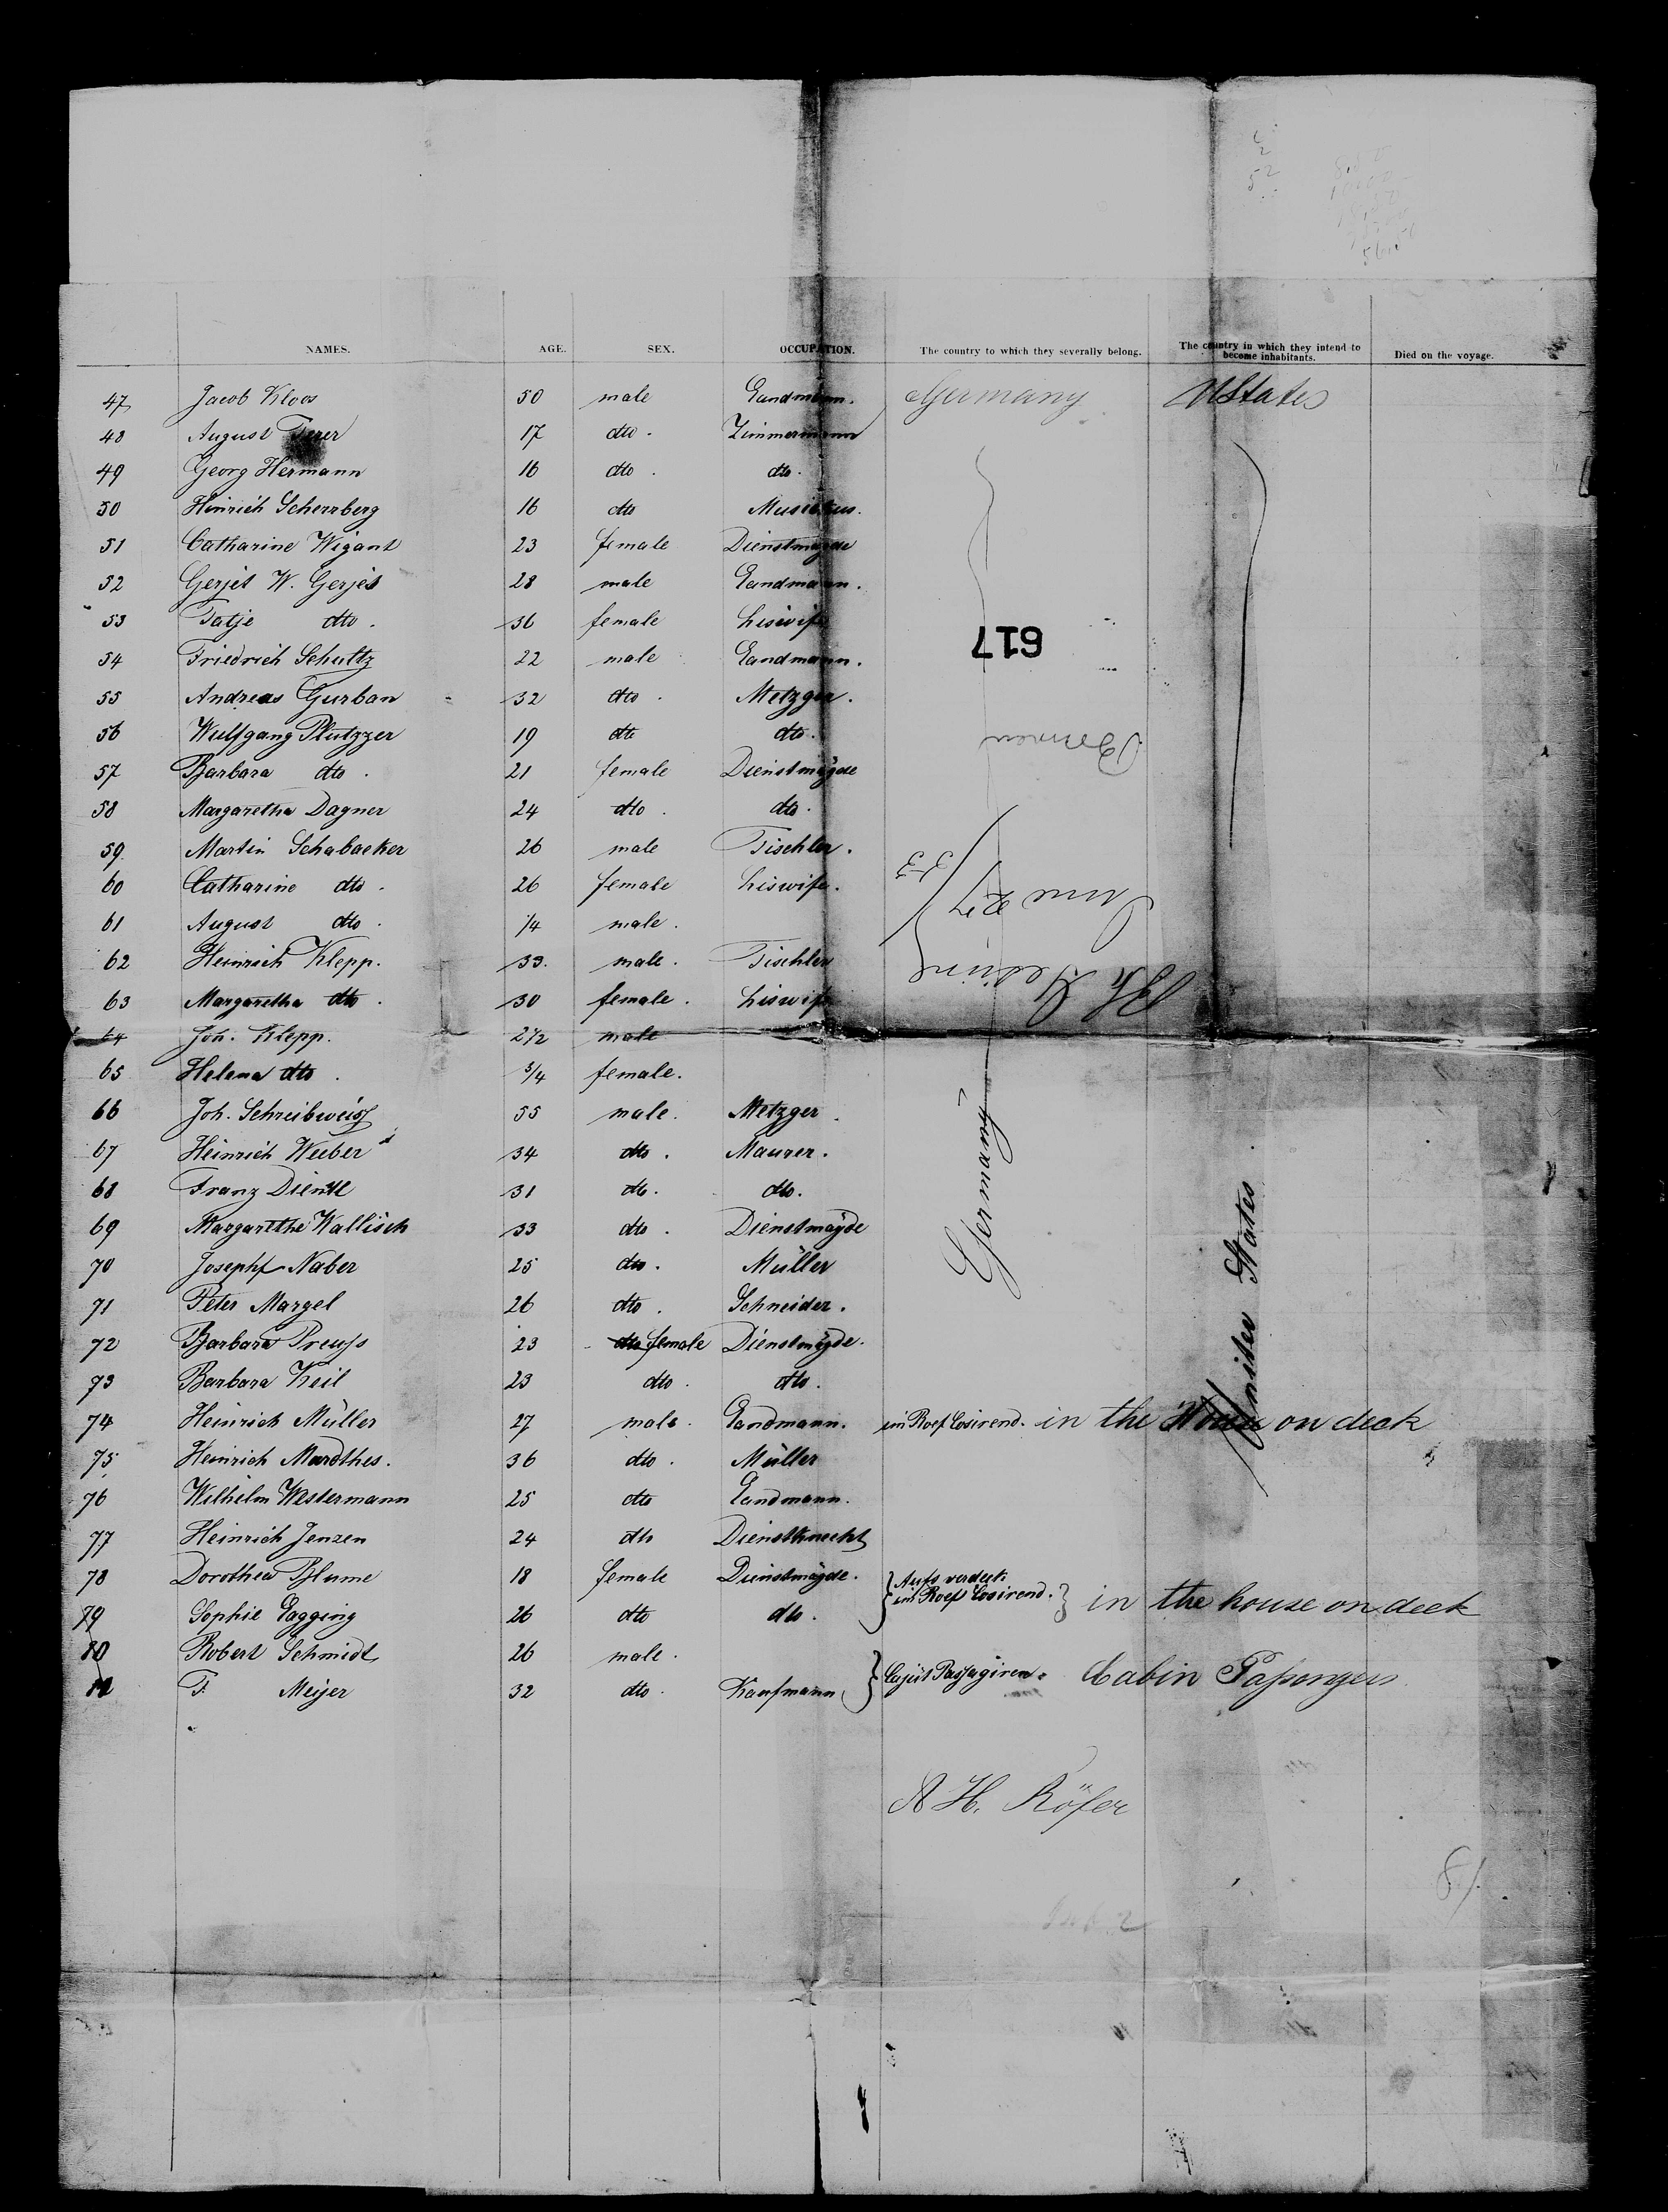 NAMES. AGE. SEX. OCCUPATION. The country to which they severally belong. The country in which they intend to become inhabitants. Died on the voyage.
47 Jacob Kloos 50 male Landmann. Germany UStates
48 August 17 dto. Zimmermann
49 Georg Hermann 16 dto. dto.
50 Heinrich Scherrberg 16 dto Musikus.
51 Catharine Wigant 23 female Dienstmägde
52 Gerjet W. Gerjes 28 male Landmann.
53 Tatje dto. 36 female hiswife
54 Friedrich Schultz 22 male Landmann.
55 Andreas Gurban 32 dto. Metzger.
56 Wulfgang Plutzzer 19 dto dto.
57 Barbara dto. 21 female Dienstmägde
58 Margaretha Dagner 24 dto. dto.
59 Martin Schabacker 26 male Tischler.
60 Catharine dto. 26 female hiswife.
61 August dto. 1/4 male.
62 Heinrich Klepp. 33. male. Tischler
63 Margaretha dto. 30 female. hiswife
64 Joh. Klepp. 2 1/2 male
65 Helena dto. 3/4 female.
66 Joh. Schreibweiss 55 male. Metzger.
67 Heinrich Weber 34 dto. Maurer.
68 Franz Dienstl 31 dto. dto.
69 Margarethe Wallisch 33 dto. Dienstmägde
70 Joseph Naber 25 dto. Müller
71 Peter Margel 26 dto. Schneider.
72 Barbara Preuss 23 dto female Dienstmägde.
73 Barbara Keil 23 dto. dto.
74 Heinrich Müller 27 male. Landmann. im Roef Losirend. in the House on deck
75 Heinrich Mardthes. 36 dto. Müller
76 Wilhelm Westermann 25 dto Landmann.
77 Heinrich Jenzen 24 dto Dienstknecht
78 Dorothea Blume 18 female Dienstmägde. Aufs verdeck
79 Sophie Lagging 26 dto dto. im Roef Losirend. in the house on deck
80 Robert Schmidt 26 male.
F. Meijer 32 dto. Kaufmann Cajüt Passagiren. Cabin Passengers
Germany
United States
617
Bremen
June 27/53
A H. Röfer
81